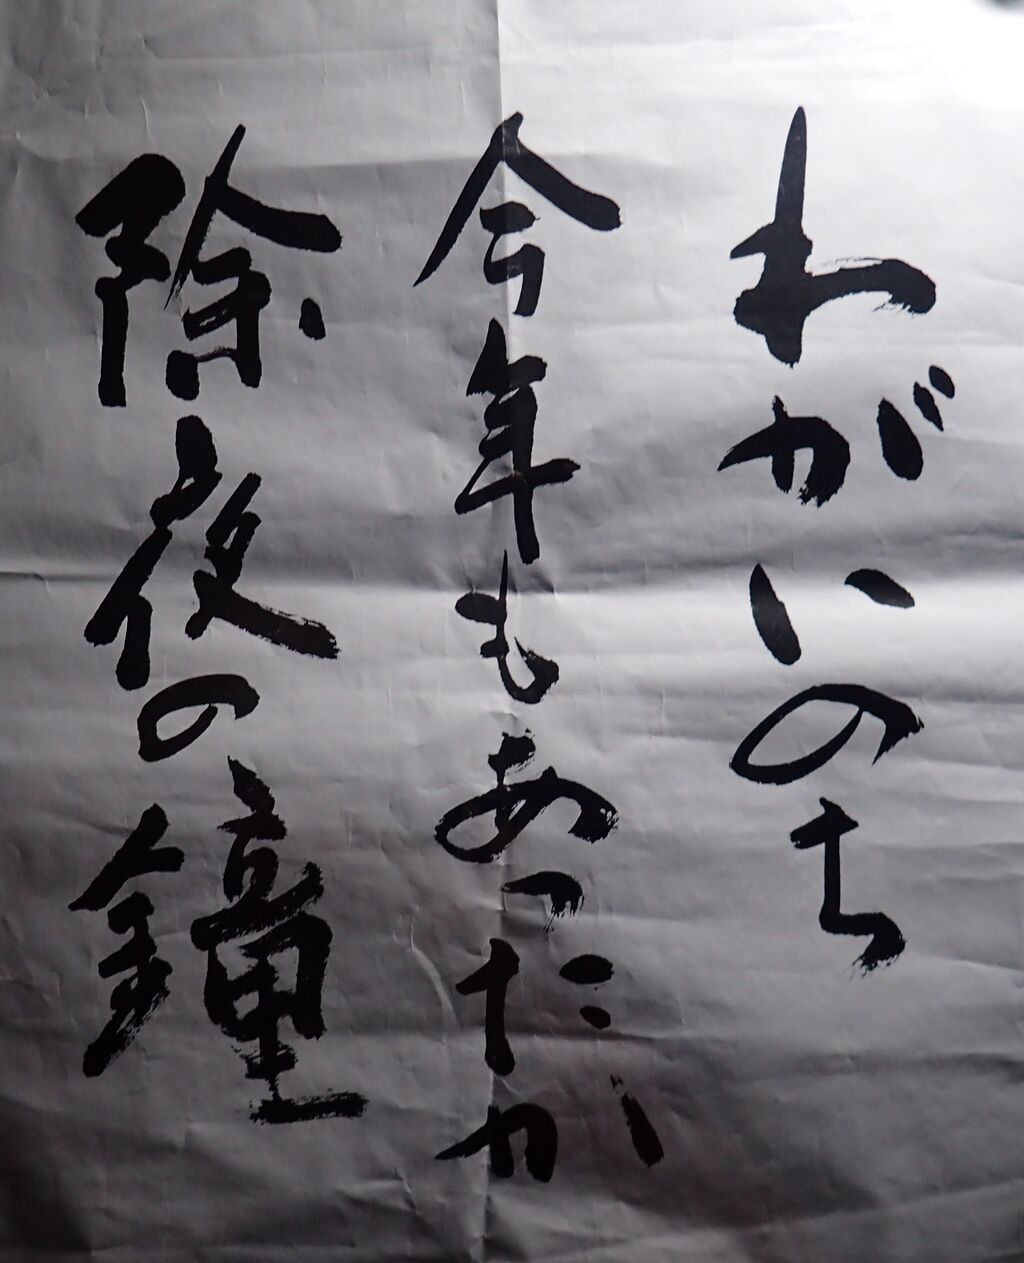 わがいのち
今年もあったか
除夜の鐘